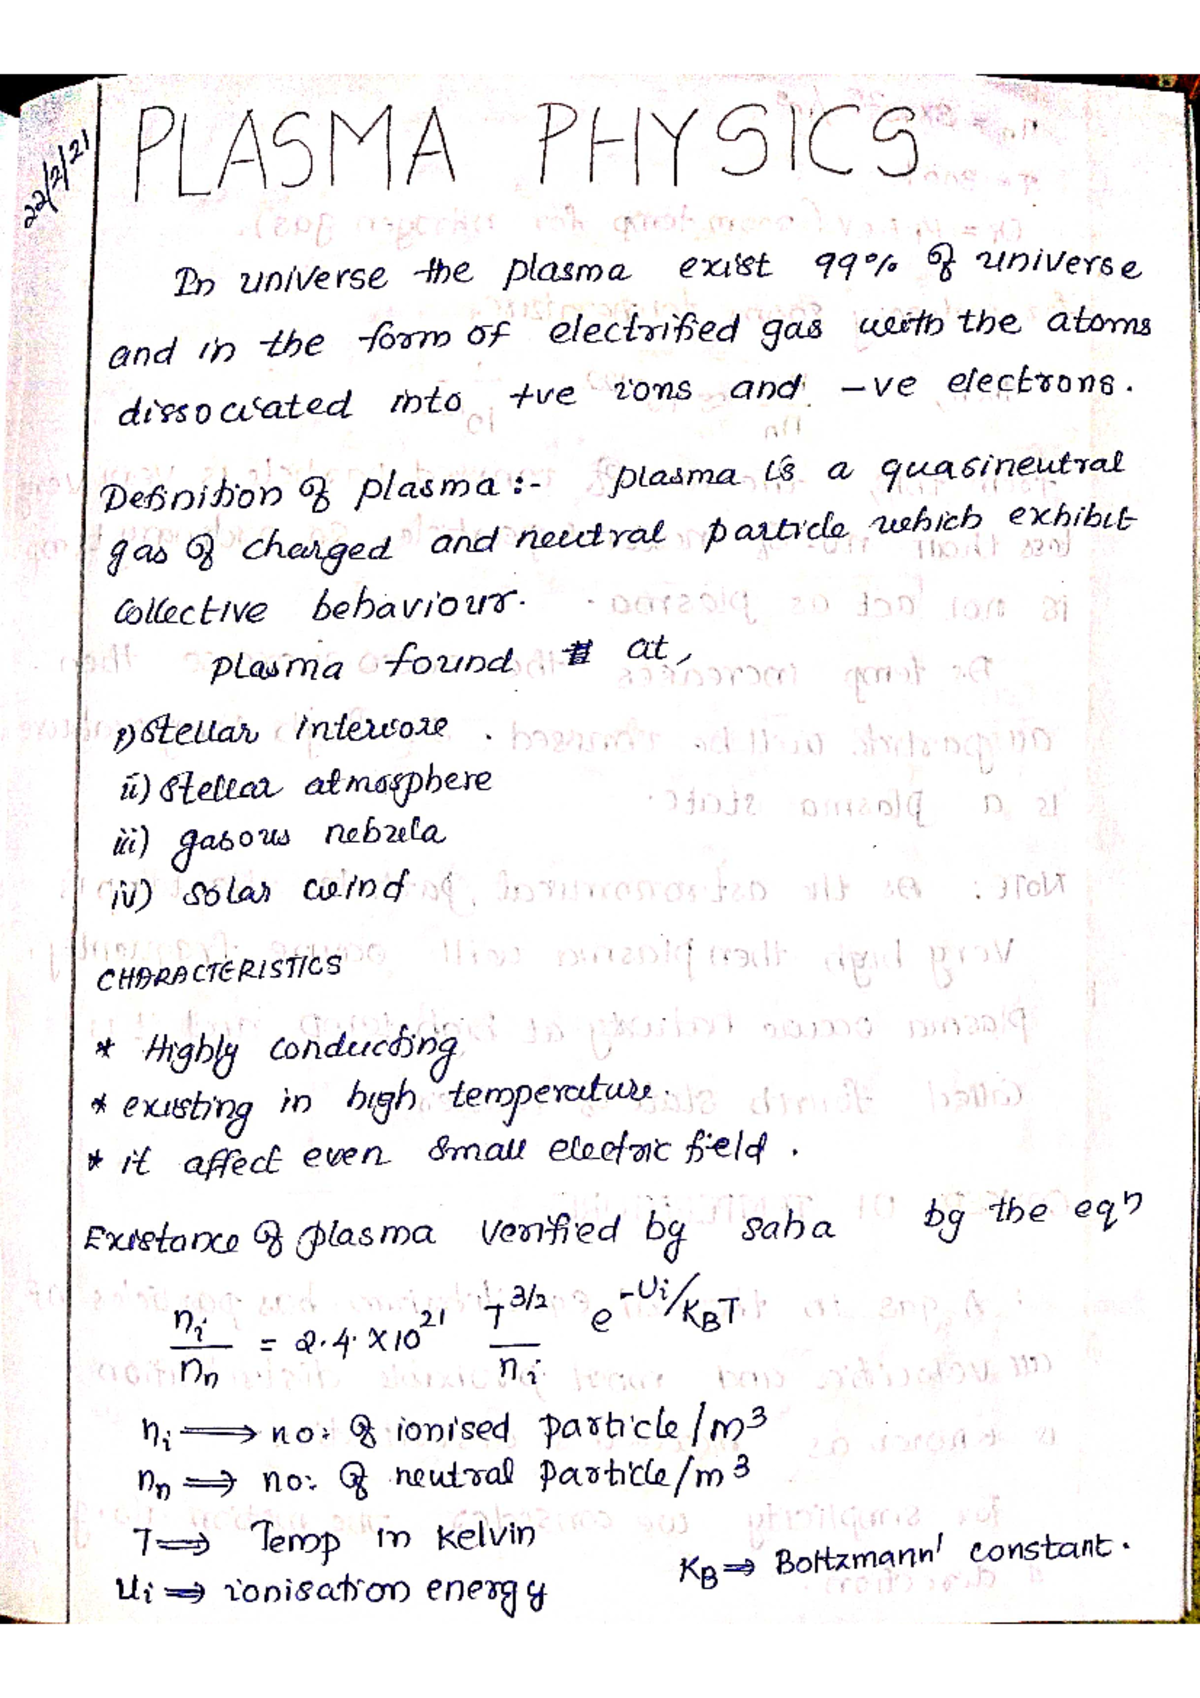 22/2/21
PLASMA PHYSICS
In universe the plasma exist 99% of universe
and in the form of electrified gas with the atoms
dissociated into +ve ions and -ve electrons.
Definition of plasma :- plasma is a quasineutral
gas of charged and neutral particle which exhibit
collective behaviour.
plasma found at,
i) stellar interiore .
ii) stellar atmosphere
iii) gasous nebula
iv) solar wind
CHARACTERISTICS
* Highly conducting
* existing in high temperature.
* it affect even small electric field .
Existance of plasma verified by saha by the eqn
ni/nn = 2.4. x 10^21 T^3/2/ni e^-Ui/KBT
ni ⟹ no: of ionised particle/m3
nn ⟹ no: of neutral particle/m3
T ⟹ Temp in kelvin
Ui ⟹ ionisation energy
KB ⟹ Boltzmann' constant.